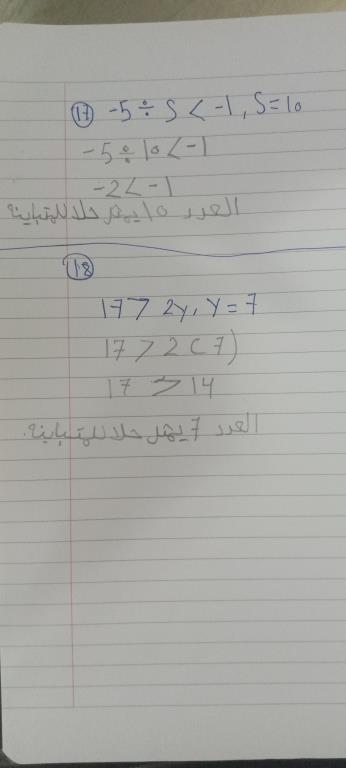 17 -5 ÷ S < -1, S = 10
-5 ÷ 10 < -1
-2 < -1
العدد 10 يمثل حلا للمتباينة
18
17 > 2y, y = 7
17 > 2(7)
17 > 14
العدد 7 يمثل حلا للمتباينة.